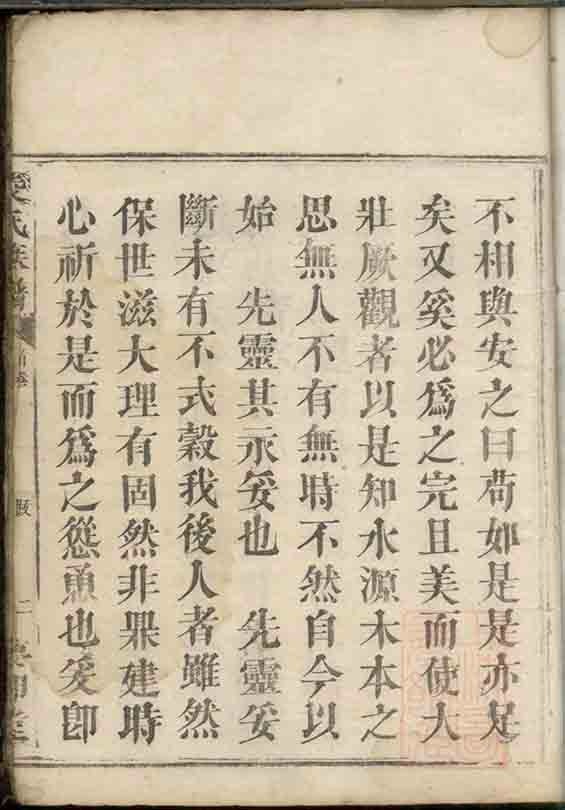 不相與安之曰苟如是是亦足
矣又奚必爲之完且美而使大
壯厥觀者以是知水源木本之
思無人不有無時不然自今以
始　先靈其永妥也　先靈妥
斷未有不式穀我後人者雖然
保世滋大理有固然非㬎建時
心祈於是而爲之慫恿也爰卽
氏族譜